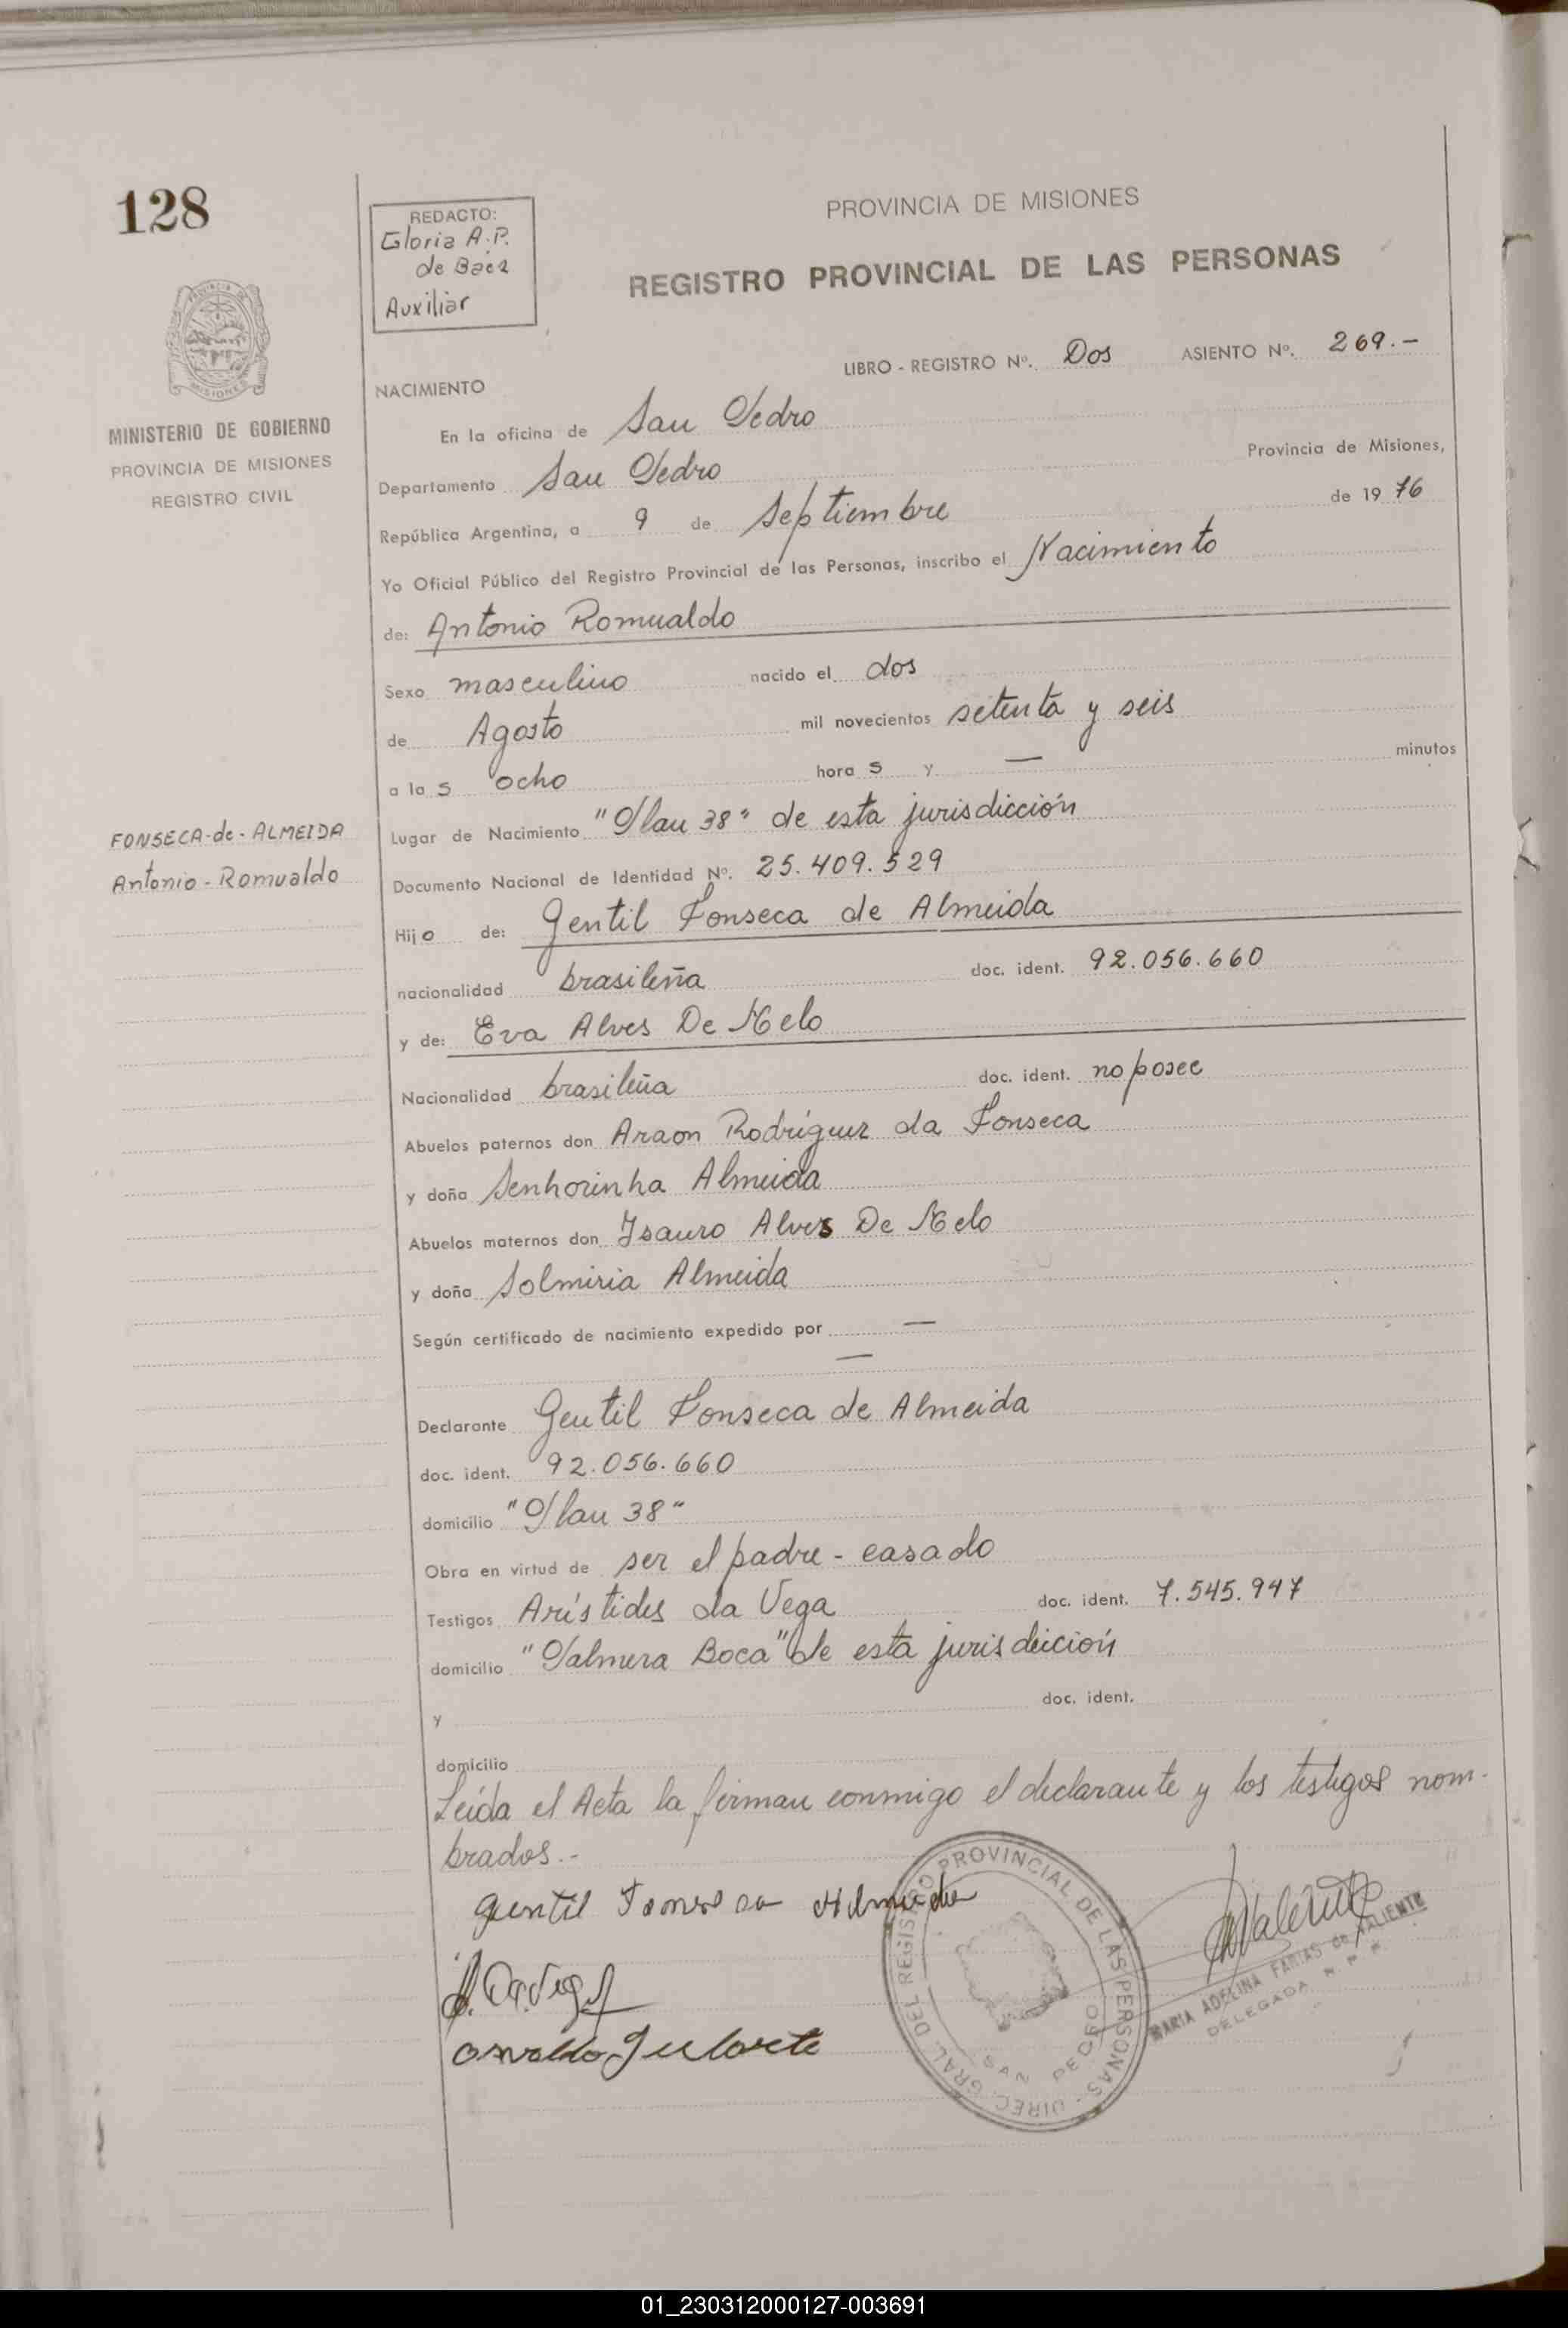 128
REDACTO:
Gloria A.P.
de Baez
Auxiliar
PROVINCIA DE MISIONES
REGISTRO PROVINCIAL DE LAS PERSONAS
LIBRO - REGISTRO Nº. Dos ASIENTO Nº. 269.-
PROVINCIA DE
MISIONES
MINISTERIO DE GOBIERNO
PROVINCIA DE MISIONES
REGISTRO CIVIL
NACIMIENTO
En la oficina de San Pedro
Departamento San Pedro Provincia de Misiones,
República Argentina, a 9 de Septiembre de 1976
Yo Oficial Público del Registro Provincial de las Personas, inscribo el Nacimiento
de: Antonio Romualdo
Sexo masculino nacido el dos
de Agosto mil novecientos setenta y seis
a las ocho horas y — minutos
FONSECA-de-ALMEIDA
Antonio-Romualdo
Lugar de Nacimiento "Plan 38" de esta jurisdicción
Documento Nacional de Identidad Nº. 25.409.529
Hijo de: Gentil Fonseca de Almeida
nacionalidad brasileña doc. ident. 92.056.660
y de: Eva Alves De Melo
Nacionalidad brasileña doc. ident. no posee
Abuelos paternos don Araon Rodríguez da Fonseca
y doña Senhorinha Almeida
Abuelos maternos don Isauro Alves De Melo
y doña Solmiria Almeida
Según certificado de nacimiento expedido por —
—
Declarante Gentil Fonseca de Almeida
doc. ident. 92.056.660
domicilio "Plan 38"
Obra en virtud de ser el padre - casado
Testigos Arístides da Vega doc. ident. 7.545.947
domicilio "Palmera Boca" de esta jurisdicción
y doc. ident.
domicilio
Leída el Acta la firman conmigo el declarante y los testigos nom-
brados.-
gentil
Osvaldo
DIREC. GRAL. DEL REGISTRO PROVINCIAL DE LAS PERSONAS
SAN PEDRO
Valiente
MARIA ADELINA FARIAS de VALIENTE
DELEGADA R. P. P.
01_230312000127-003691